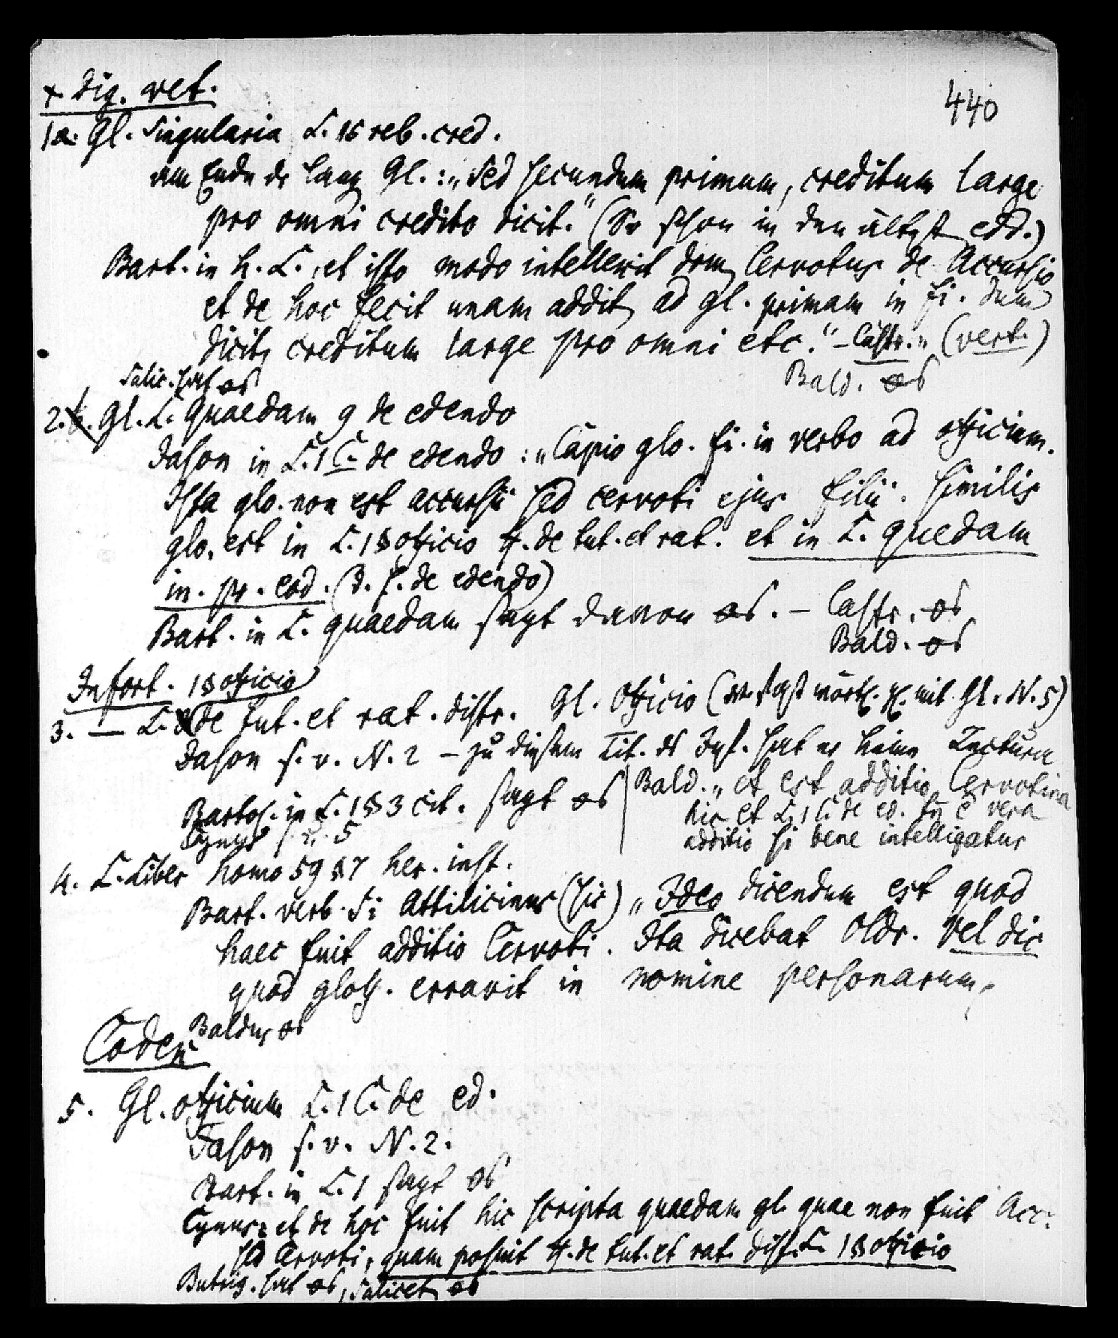 + Dig. vet.
440
1a. Gl. Singularia L. 15 reb. cred.
am Ende der lang Gl.: „Sed secundum primum, creditum large
pro omni credito dicit." (So schon in den ältest edd.)
Bart. in h. L., et isto modo intellexit dom Cervotus de Accursio
et de hoc fecit unam addit ad gl. primam in fi. dum
dicit creditum large pro omni etc." – Castr. „ (vert.)
Salic. hat os
Bald. os
2. Gl. L. Quaedam 9 de edendo
Jason in L. 1 C. de edendo: „Capio glo. fi. in verbo ad officium.
Ista glo. non est accursii sed cervoti ejus filii. Similis
glo. est in L. 1 § officio ff. de tut. et rat. et in L. quedam
in. pr. eod. (D. h. de edendo)
Bart. in L. quaedam sagt davon os. – Castr. os
Bald. os
Infort. 1 § officio
3. — L. de tut. et rat. distr. Gl. Officio ( fast wörtl. mit Gl. N. 5)
Jason s. v. N. 2 – zu diesem Tit. des Inf. hat er keine Lectura
Bartol. in L. 1 § 3 cit. sagt os
Bald. „et est additio Cervotina
hic et L. 1 C. de ed. vera
additio si bene intelligatur
Cynus 5
4. L. Liber homo 59 § 7 her. inst.
Bart. verb. Si Attilicinus (sic) „Ideo dicendum est quod
haec fuit additio Cervoti. Ita dicebat Oldr. Vel dic
quod gloss. erravit in nomine personarum„
Baldus os
Codex
5. Gl. officium L. 1 C. de ed.
Jason s. v. N. 2.
Bart. in L. 1 sagt os
Cynus: et de hoc fuit hic scripta quaedam gl. quae non fuit Acc.
sed Cervoti, quam posuit ff. de tut. et rat. dist. L. 1 § officio
Butrig. hat os, Salicet os